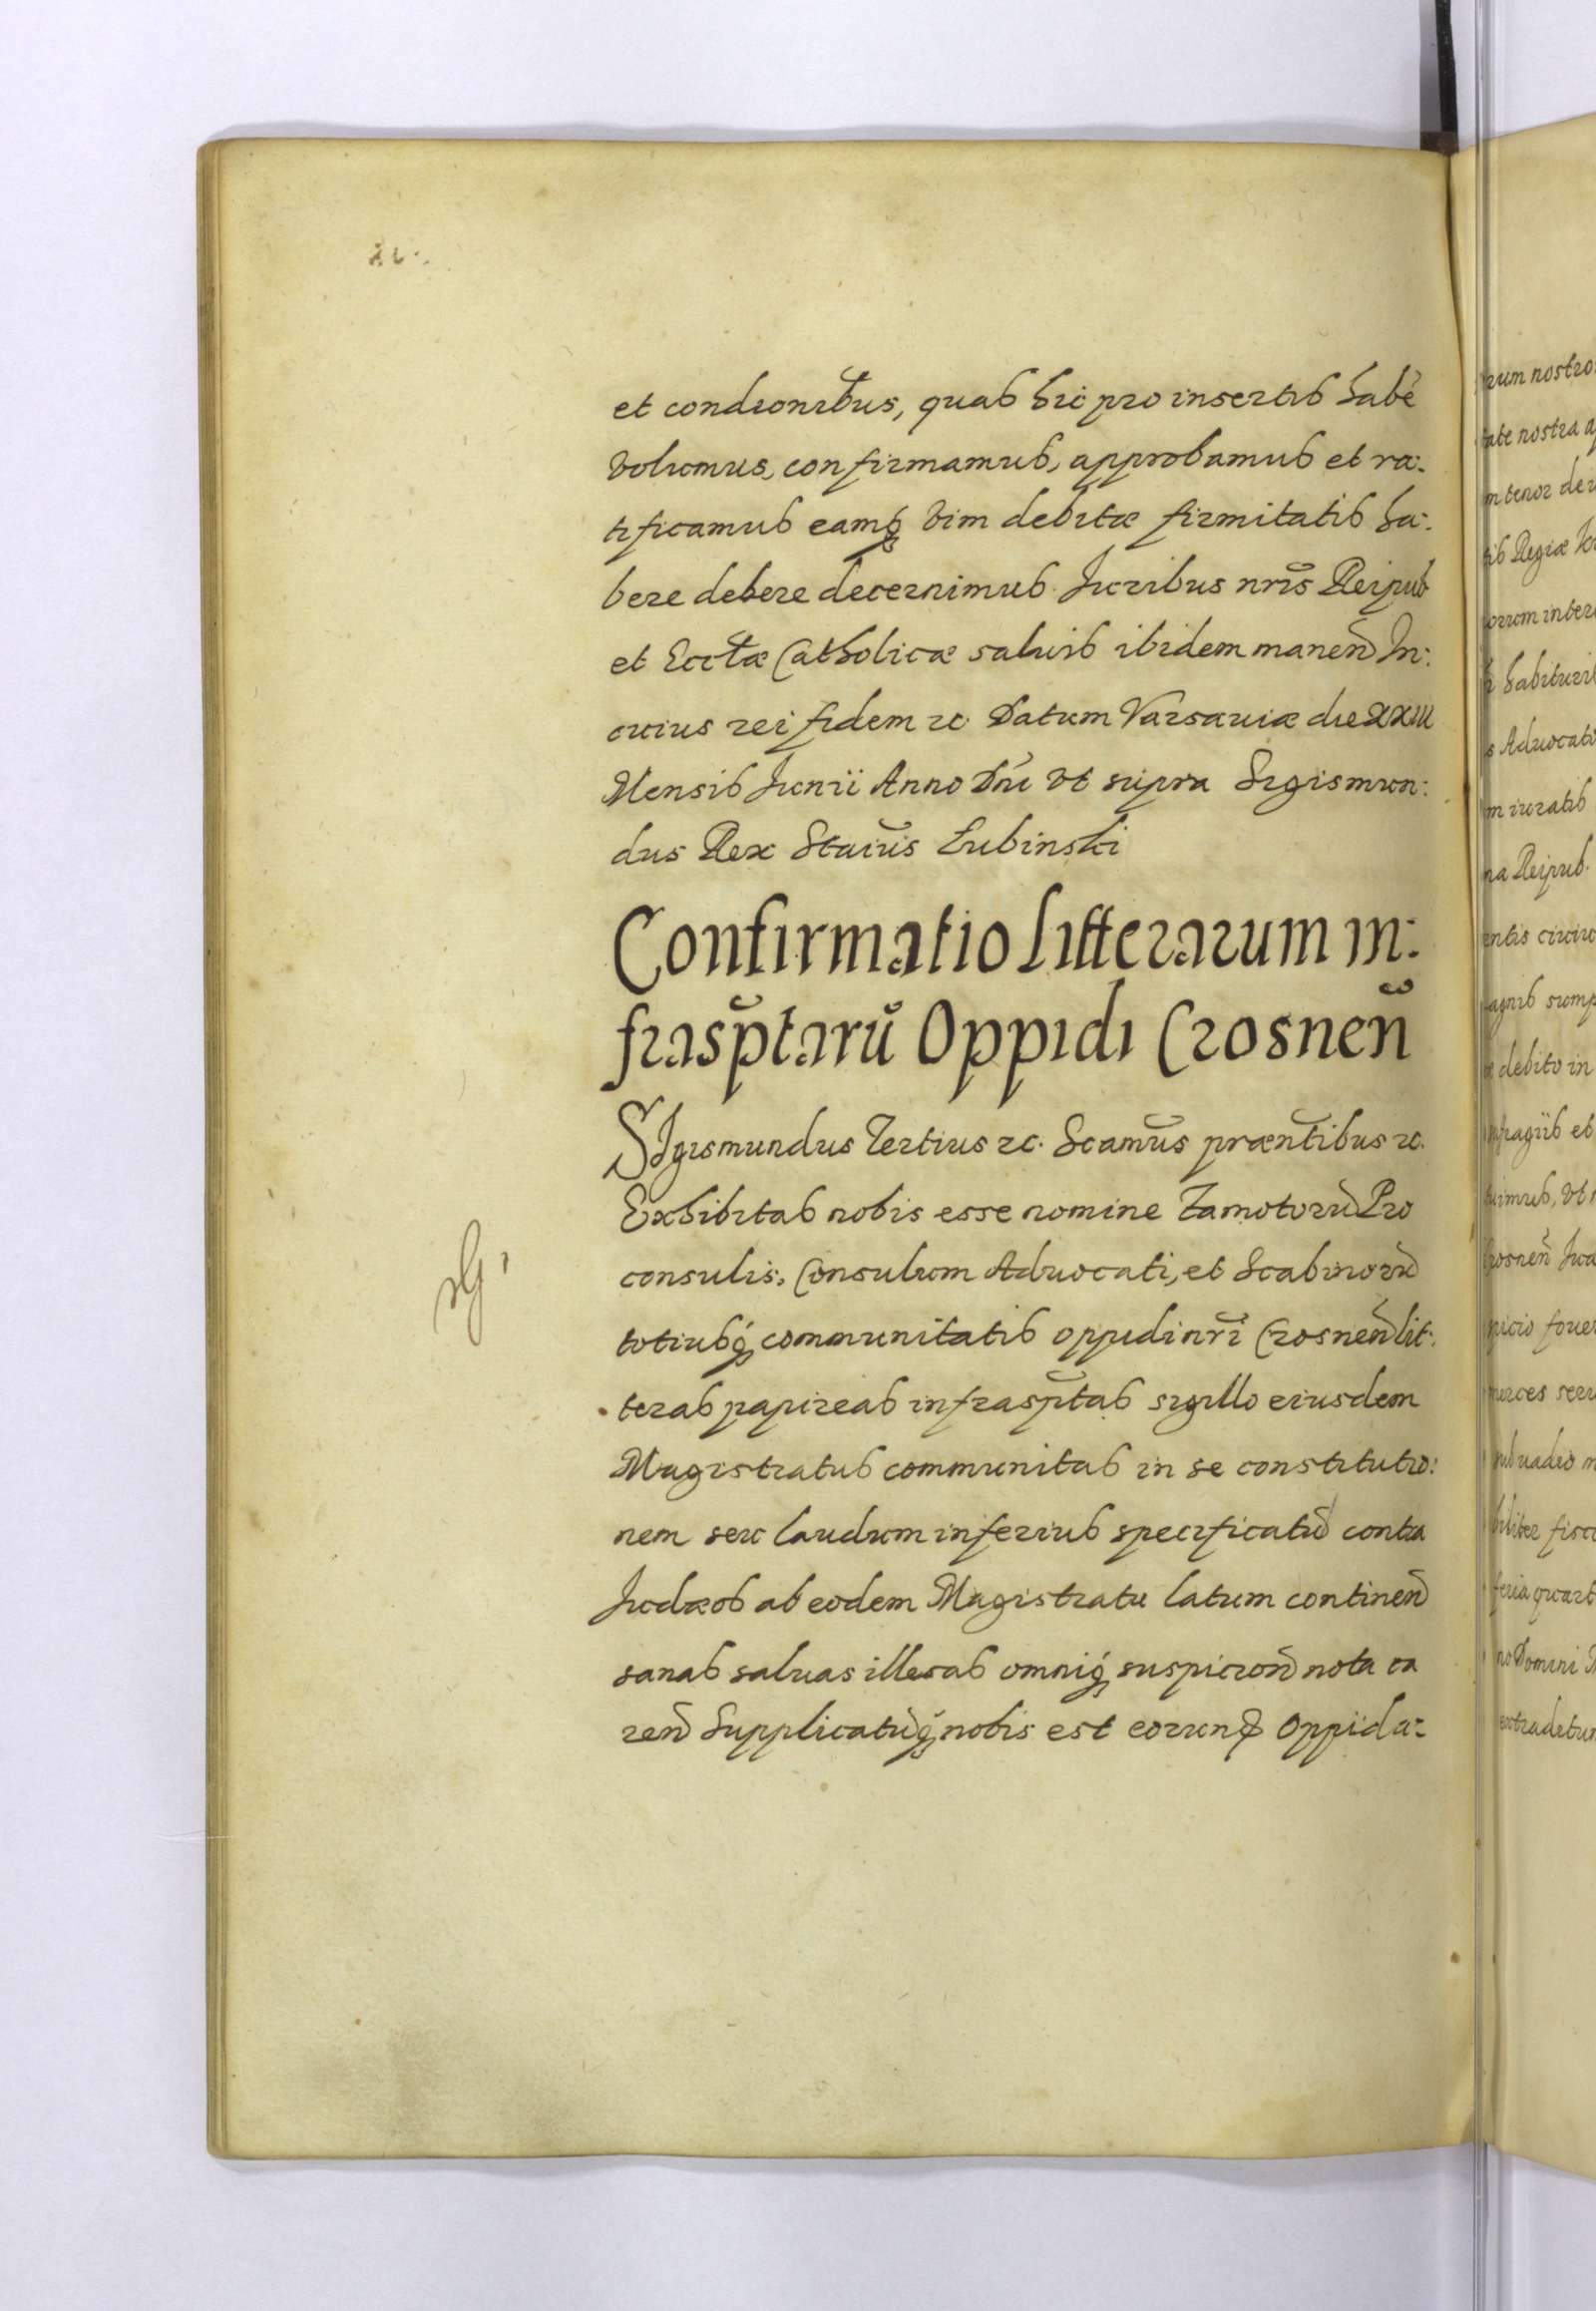 et condionibus, quas hic pro insertis habe
volumus, confirmamus, approbamus et ra:
tificamus eamq vim debitæ firmitatis ha:
bere debere decernimus Juribus nris Reipub
et Ecclæ Catholicæ saluis ibidem manen In:
cuius rei fidem etc Datum Varsauiæ die XXIII
Mensis Junii Anno Dni vt supra Sigismun:
dus Rex Staius Lubinski
Confirmatio Litterarum in:
frasptarū Oppidi Crosnen̄
SIgismundus Tertius etc. Scamus præntibus etc.
Exhibitas nobis esse nomine famotorū Pro
consulis, Consulum Aduocati, et Scabinorū
totiusq communitatis oppidi nri Crosnen lit:
teras papireas infrasptas sigillo eiusdem
Magistratus communitas in se constitutio:
nem seu laudum inferius specificatū contra
Judæos ab eodem Magistratu latum continen
sanas saluas illesas omniq suspicion nota ca
ren Supplicatūq nobis est eorund Oppida:
rum nostro
tate nostra
tenor de
Regiæ
habituri
Aduocati
iuratis
na Reipub.
debito in
Crosnen
picio foue
merces
feria quart
no Domini
extradetur